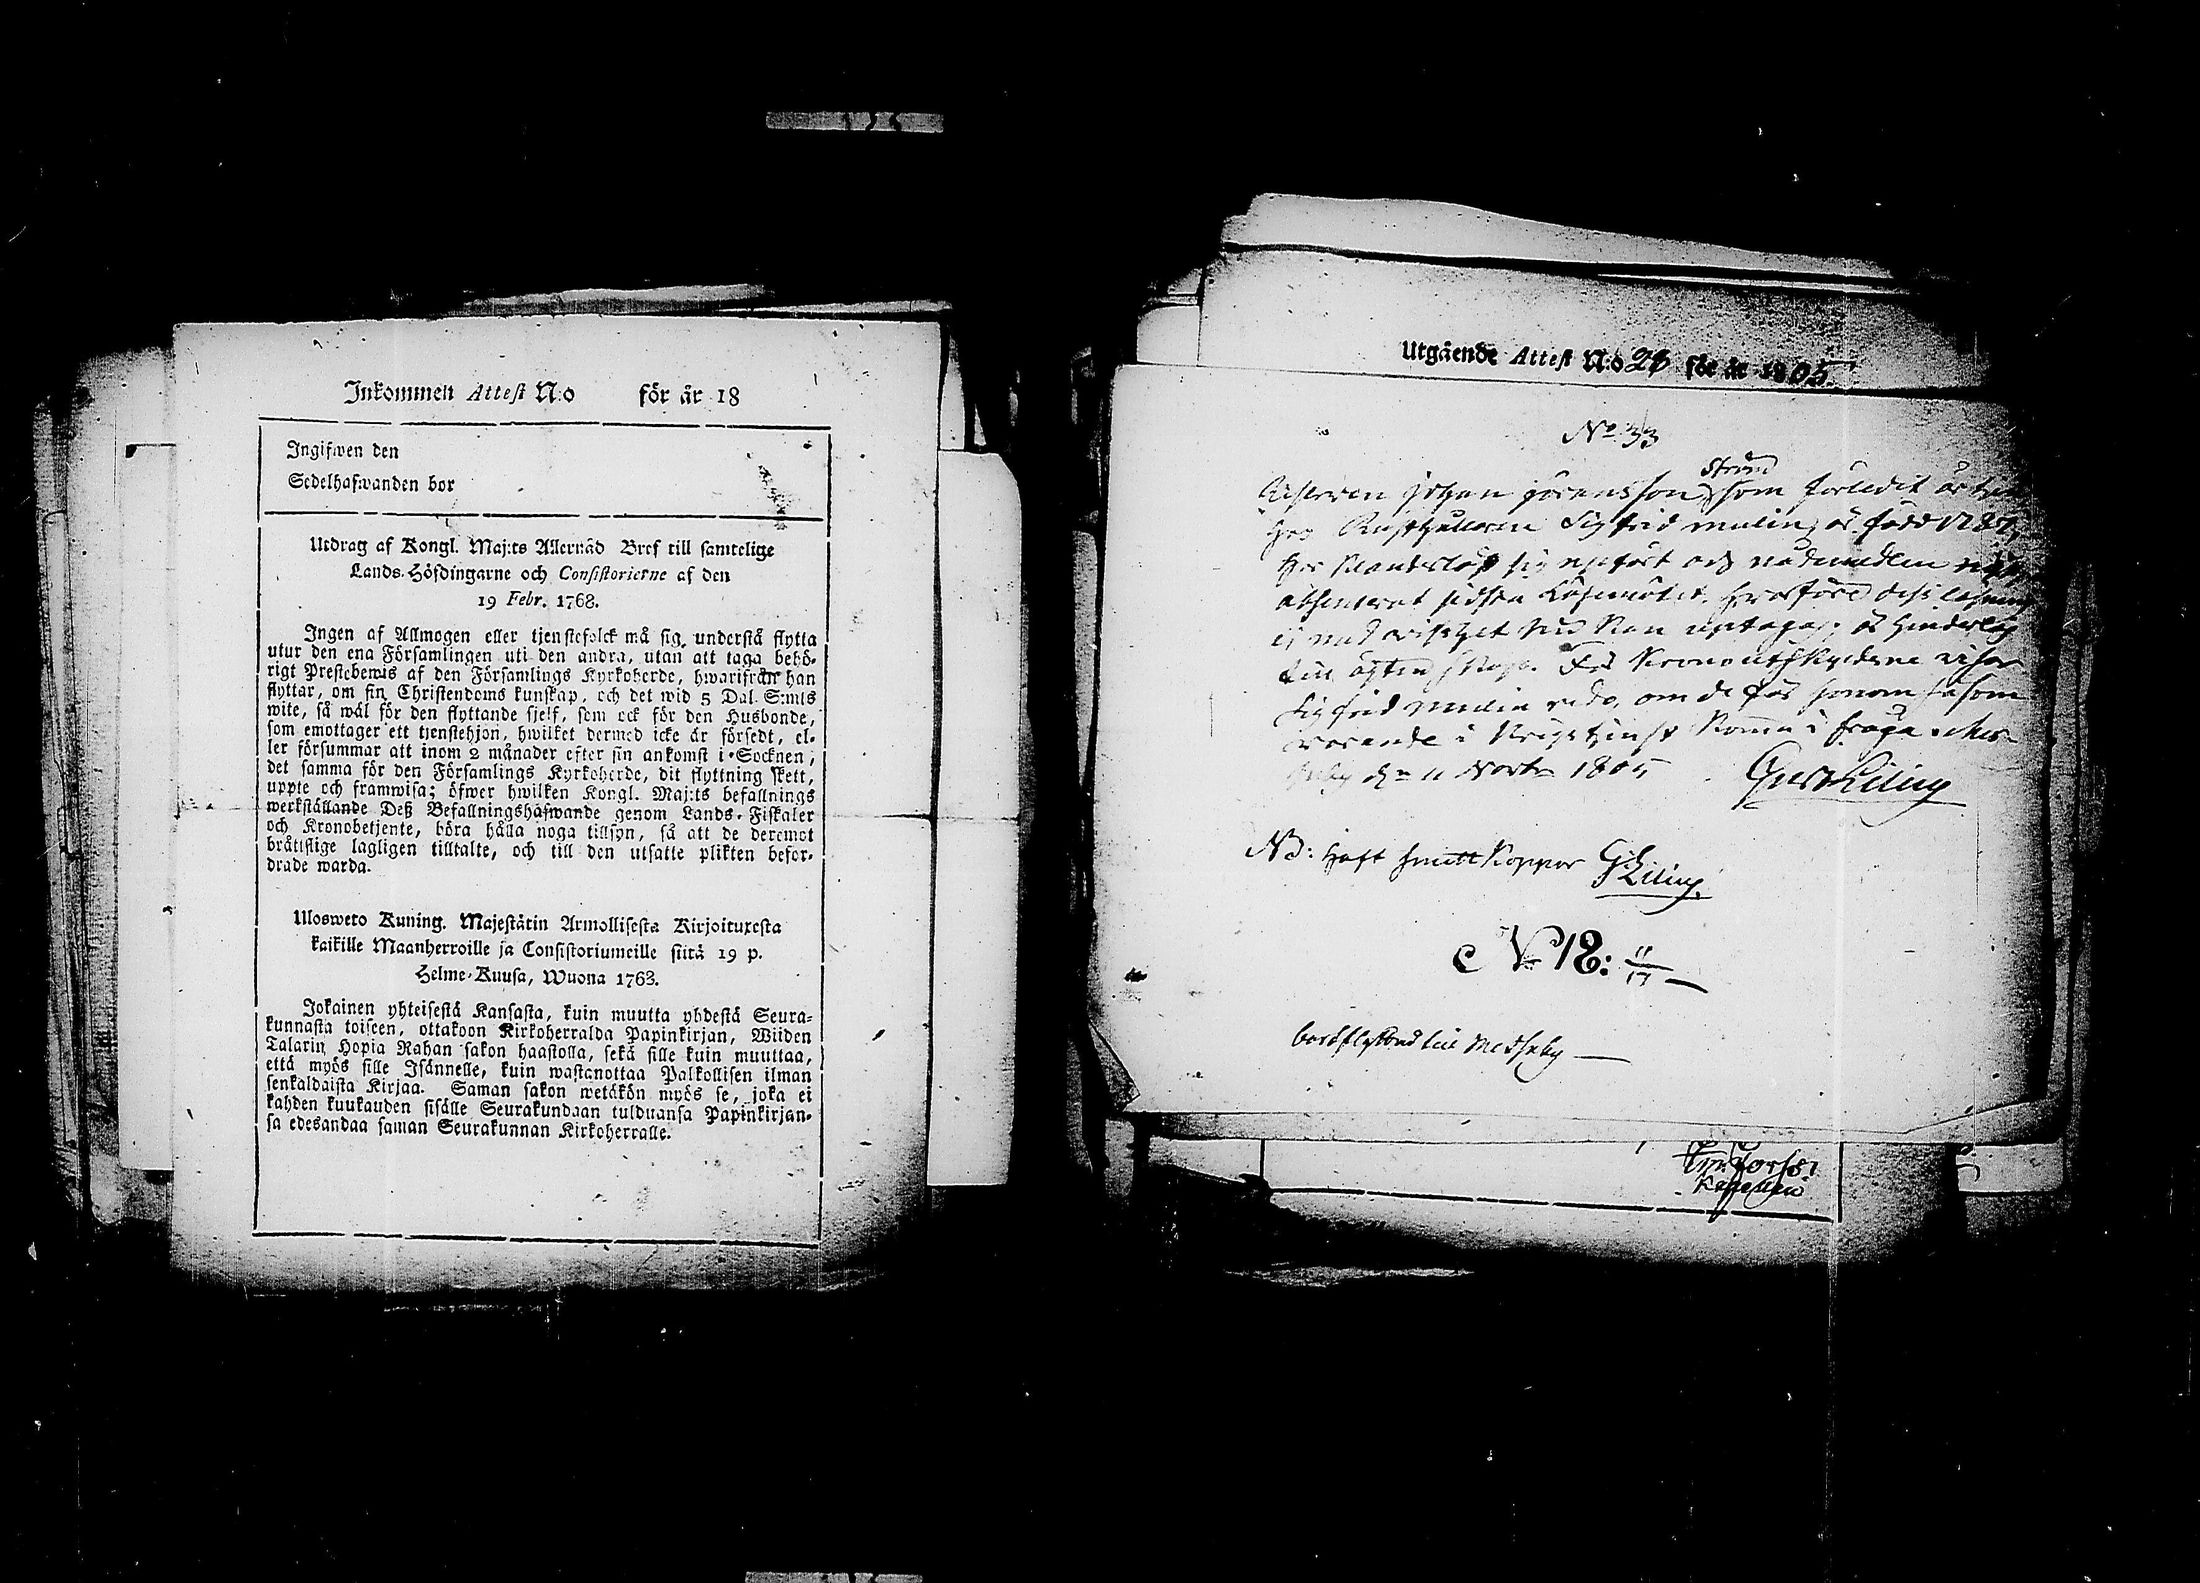 Inkommen Attest N:o för år 18
Ingifwen den
Sedelhafwanden bor
Utdrag af Kongl. Maj:ts Allernåd Bref till samtelige
Lands-Höfdingarne och Consistorierne af den
19 Febr. 1768.
Ingen af Allmogen eller tjenstefolck må sig understå flytta
utur den ena Församlingen uti den andra, utan att taga behö-
rigt Prestebewis af den Församlings Kyrkoherde, hwarifrån han
flyttar, om sin Christendoms kunskap, och det wid 5 Dal. S:mts
wite, så wäl för den flyttande sjelf, som ock för den Husbonde,
som emottager ett tjenstehjon, hwilket dermed icke är försedt, el-
ler försummar att inom 2 månader efter sin ankomst i Socknen,
det samma för den Församlings Kyrkoherde, dit flyttning skett,
uppte och framwisa; öfwer hwilken Kongl. Maj:ts befallnings
werkställande Deß Befallningshafwande genom Lands-Fiskaler
och Kronobetjente, böra hålla noga tillsyn, så att de deremot
bråtislige lagligen tilltalte, och till den utsatte plikten befor-
drade warda.
Ulosweto Kuning. Majestätin Armollisesta Kirjoituxesta
kaikille Maanherroille ja Consistoriumeille siitä 19 p.
Helme-Kuusa, Wuona 1763.
Jokainen yhteisestä Kansasta, kuin muutta yhdestä Seura-
kunnasta toiseen, ottakoon Kirkoherralda Papinkirjan, Wiiden
Talarin Hopia Rahan sakon haastolla, sekä sille kuin muuttaa,
että myös sille Isännelle, kuin wastanottaa Palkollisen ilman
senkaldaista Kirjaa. Saman sakon wetäkön myös se, joka ei
kahden kuukauden sisälle Seurakundaan tulduansa Papinkirjan-
sa edesandaa saman Seurakunnan Kirkoherralle.
Utgående Attest N:o 28 för år 1805
No 33
Ström
Johan Göransson som förledit år
hos Rusthållaren Sigfrid Malin, är född
sig upfört och
absenterat sidsta Läsemötet. Hvarföre dess läsning
ej med visshet kan uptagas; är hinderlös
till ägtenskap. För Kronoutskylderne
Sigfrid Malin redo, om de för honom såsom
varande i Krigstjenst komma i fråga.
den 11 Novbr 1805 Gust Liling
NB: Haft smittkoppor G Liling
No 18: 11/17
bortflyttad till Mietsby
Kapellan